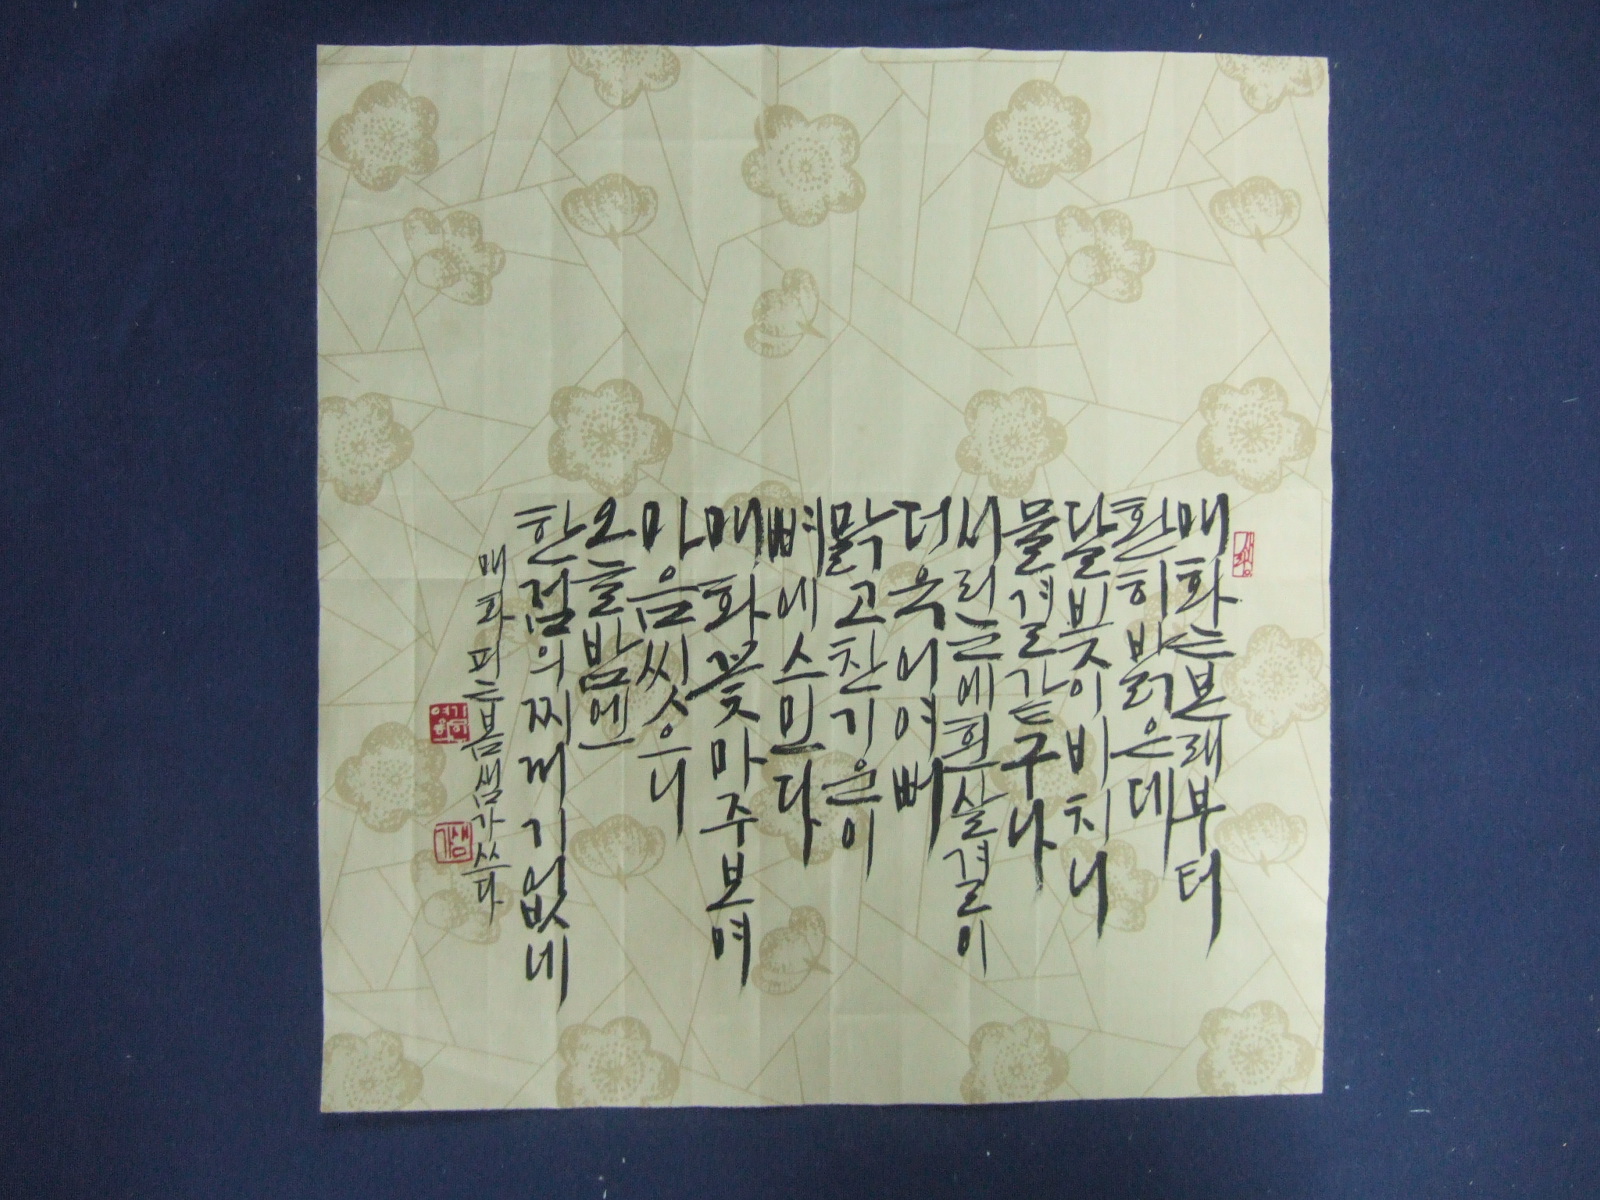 매화는본래부터
환히밝은데
달빛이비치니
물결같구나
서리눈에흰살결이
더욱어여뻐
맑고찬기운이
뼈에스민다
매화꽃마주보며
마음씻으니
오늘밤엔
한점의찌꺼기없네
매화피는봄샘가쓰다
샘가